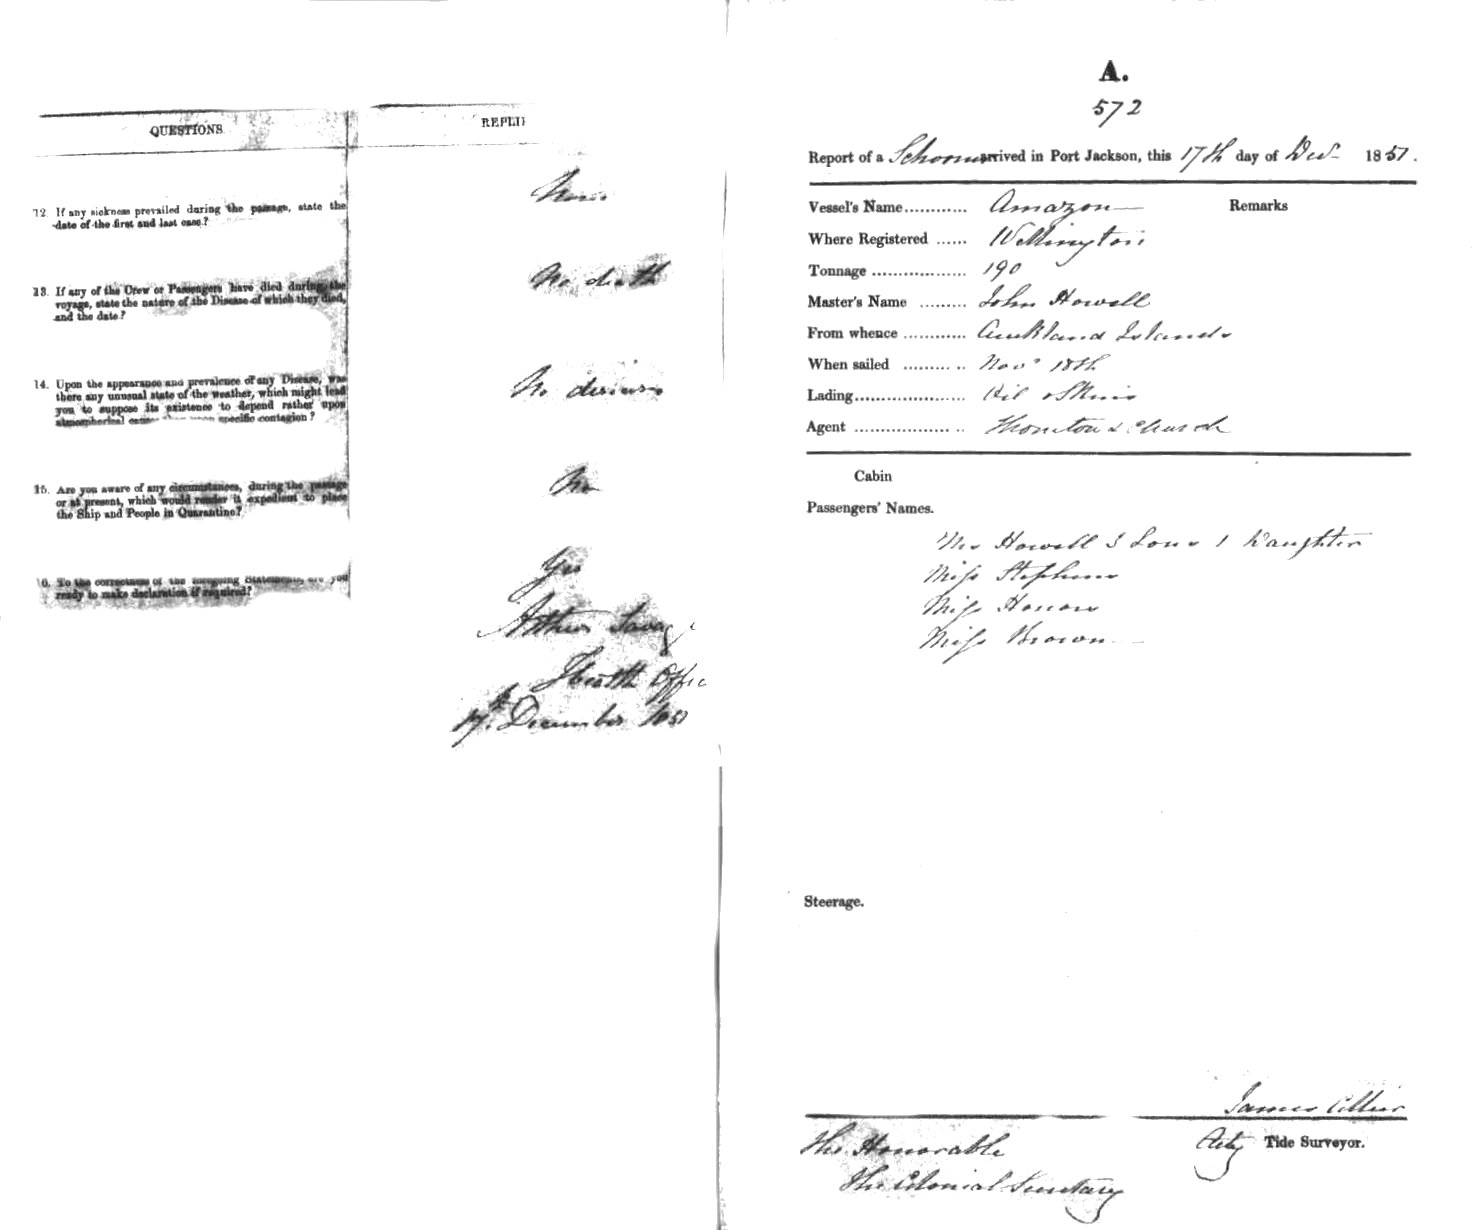 QUESTIONS.
REPLI
12. If any sickness prevailed during the passage, state the
date of the first and last case?
None
13. If any of the Crew or Passengers have died during the
voyage, state the nature of the Disease of which they died,
and the date?
No death
14. Upon the appearance and prevalence of any Disease, was
there any unusual state of the weather, which might lead
you to suppose its existence to depend rather upon
atmospherical causes than upon specific contagion?
No disease
15. Are you aware of any circumstances, during the passage
or at present, which would render it expedient to place
the Ship and People in Quarantine?
No
16. To the correctness of the foregoing Statements, are you
ready to make declaration if required?
Yes
Arthur Savage
Health Offic
17th December 1851
A.
572
Report of a Schooner arrived in Port Jackson, this 17th day of Decr 1851.
Vessel's Name............ Amazon
Remarks
Where Registered ...... Wellington
Tonnage .................. 190
Master's Name ......... John Howell
From whence ............ Auckland Islands
When sailed ......... .. Novr 18th
Lading..................... Oil & Skins
Agent .................. .. Thornton & Church
Cabin
Passengers' Names.
Mrs Howell 3 Sons 1 Daughter
Miss Stephens
Miss Honour
Miss Brown
Steerage.
James
Actg Tide Surveyor.
The Honorable
The Colonial Secretary